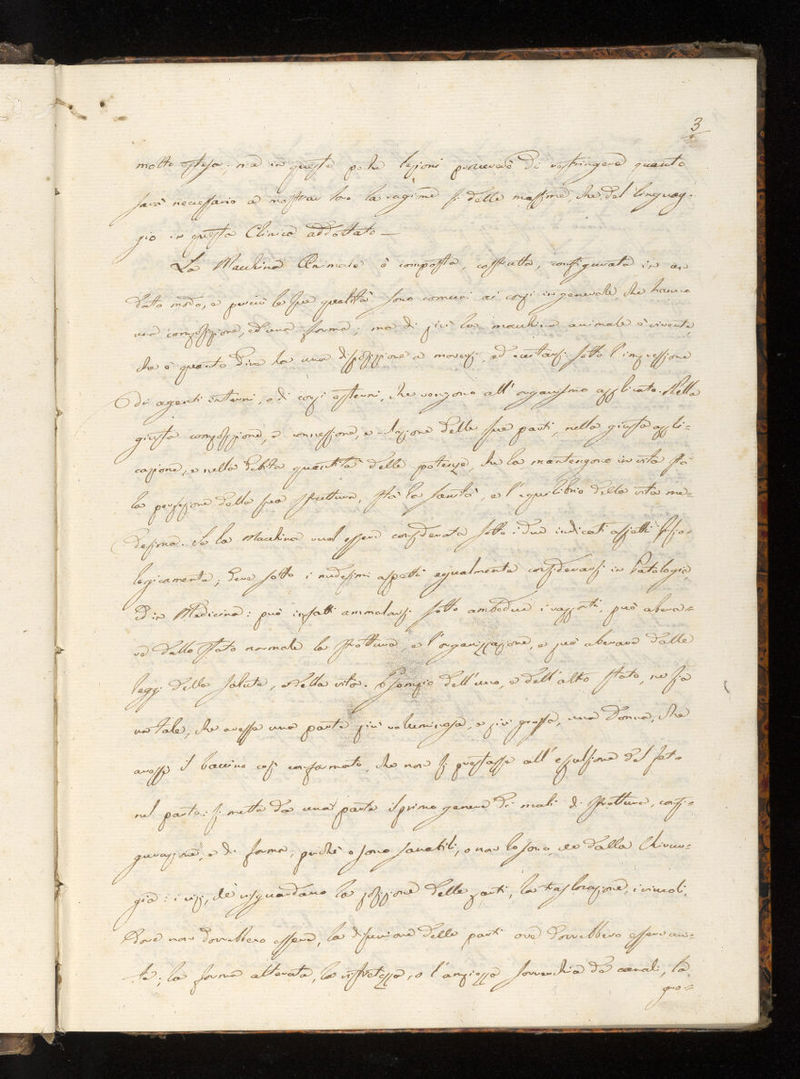 3
molto estesa: ma in queste poche lezioni procurerò di restringere quanto
sarà necessario a mostrar loro la ragione sì delle massime, che del linguag-
gio in questa Clinica addottato —
La Macchina Animale è composta, costrutta, configurata in un
dato modo, e perciò le sue qualità sono comuni ai corpi in generale che hanno
una composizione, ed una forma; ma di più la macchina animale è vivente,
che è quanto dire ha una disposizione a moversi, ed eccitarsi sotto l'impressione
di agenti interni, o di corpi esterni, che vengono all'organismo applicati. Nella
giusta composizione, e connessione, e relazione delle sue parti, nella giusta appli-
cazione, e nella debita quantità delle potenze, che la mantengono in vita sta
la perfezione della sua struttura, sta la sanità, e l'equilibrio della vita me-
desima. Se la Macchina vuol essere considerata sotto i due indicati aspetti fisio-
logicamente, deve sotto i medesimi aspetti egualmente considerarsi in Patologia,
ed in Medicina: può infatti ammalarsi sotto ambedue i rapporti, può aberra-
re dallo stato normale la struttura, e l'organizzazione, e può aberrare dalle
leggi della salute, e della vita. Esempio dell'uno, e dell'altro stato, ne fa
un tale, che avesse una parte più voluminosa, e più grossa, una donna, che
avesse il bacino così conformato, che non si prestasse all'espulsione del feto
nel parto: si metta da una parte il primo genere di mali di struttura, confi-
gurazione, e di forma, perchè o sono sanabili, o non lo sono, che dalla Chirur-
gia: i vizi, che risguardano la posizione delle parti, la traslocazione, i vincoli
dove non dovrebbero essere, la disunione delle parti ove dovrebbero essere uni-
te; la forma alterata, la ristretezza, o l'ampiezza soverchia de canali, la
gro-